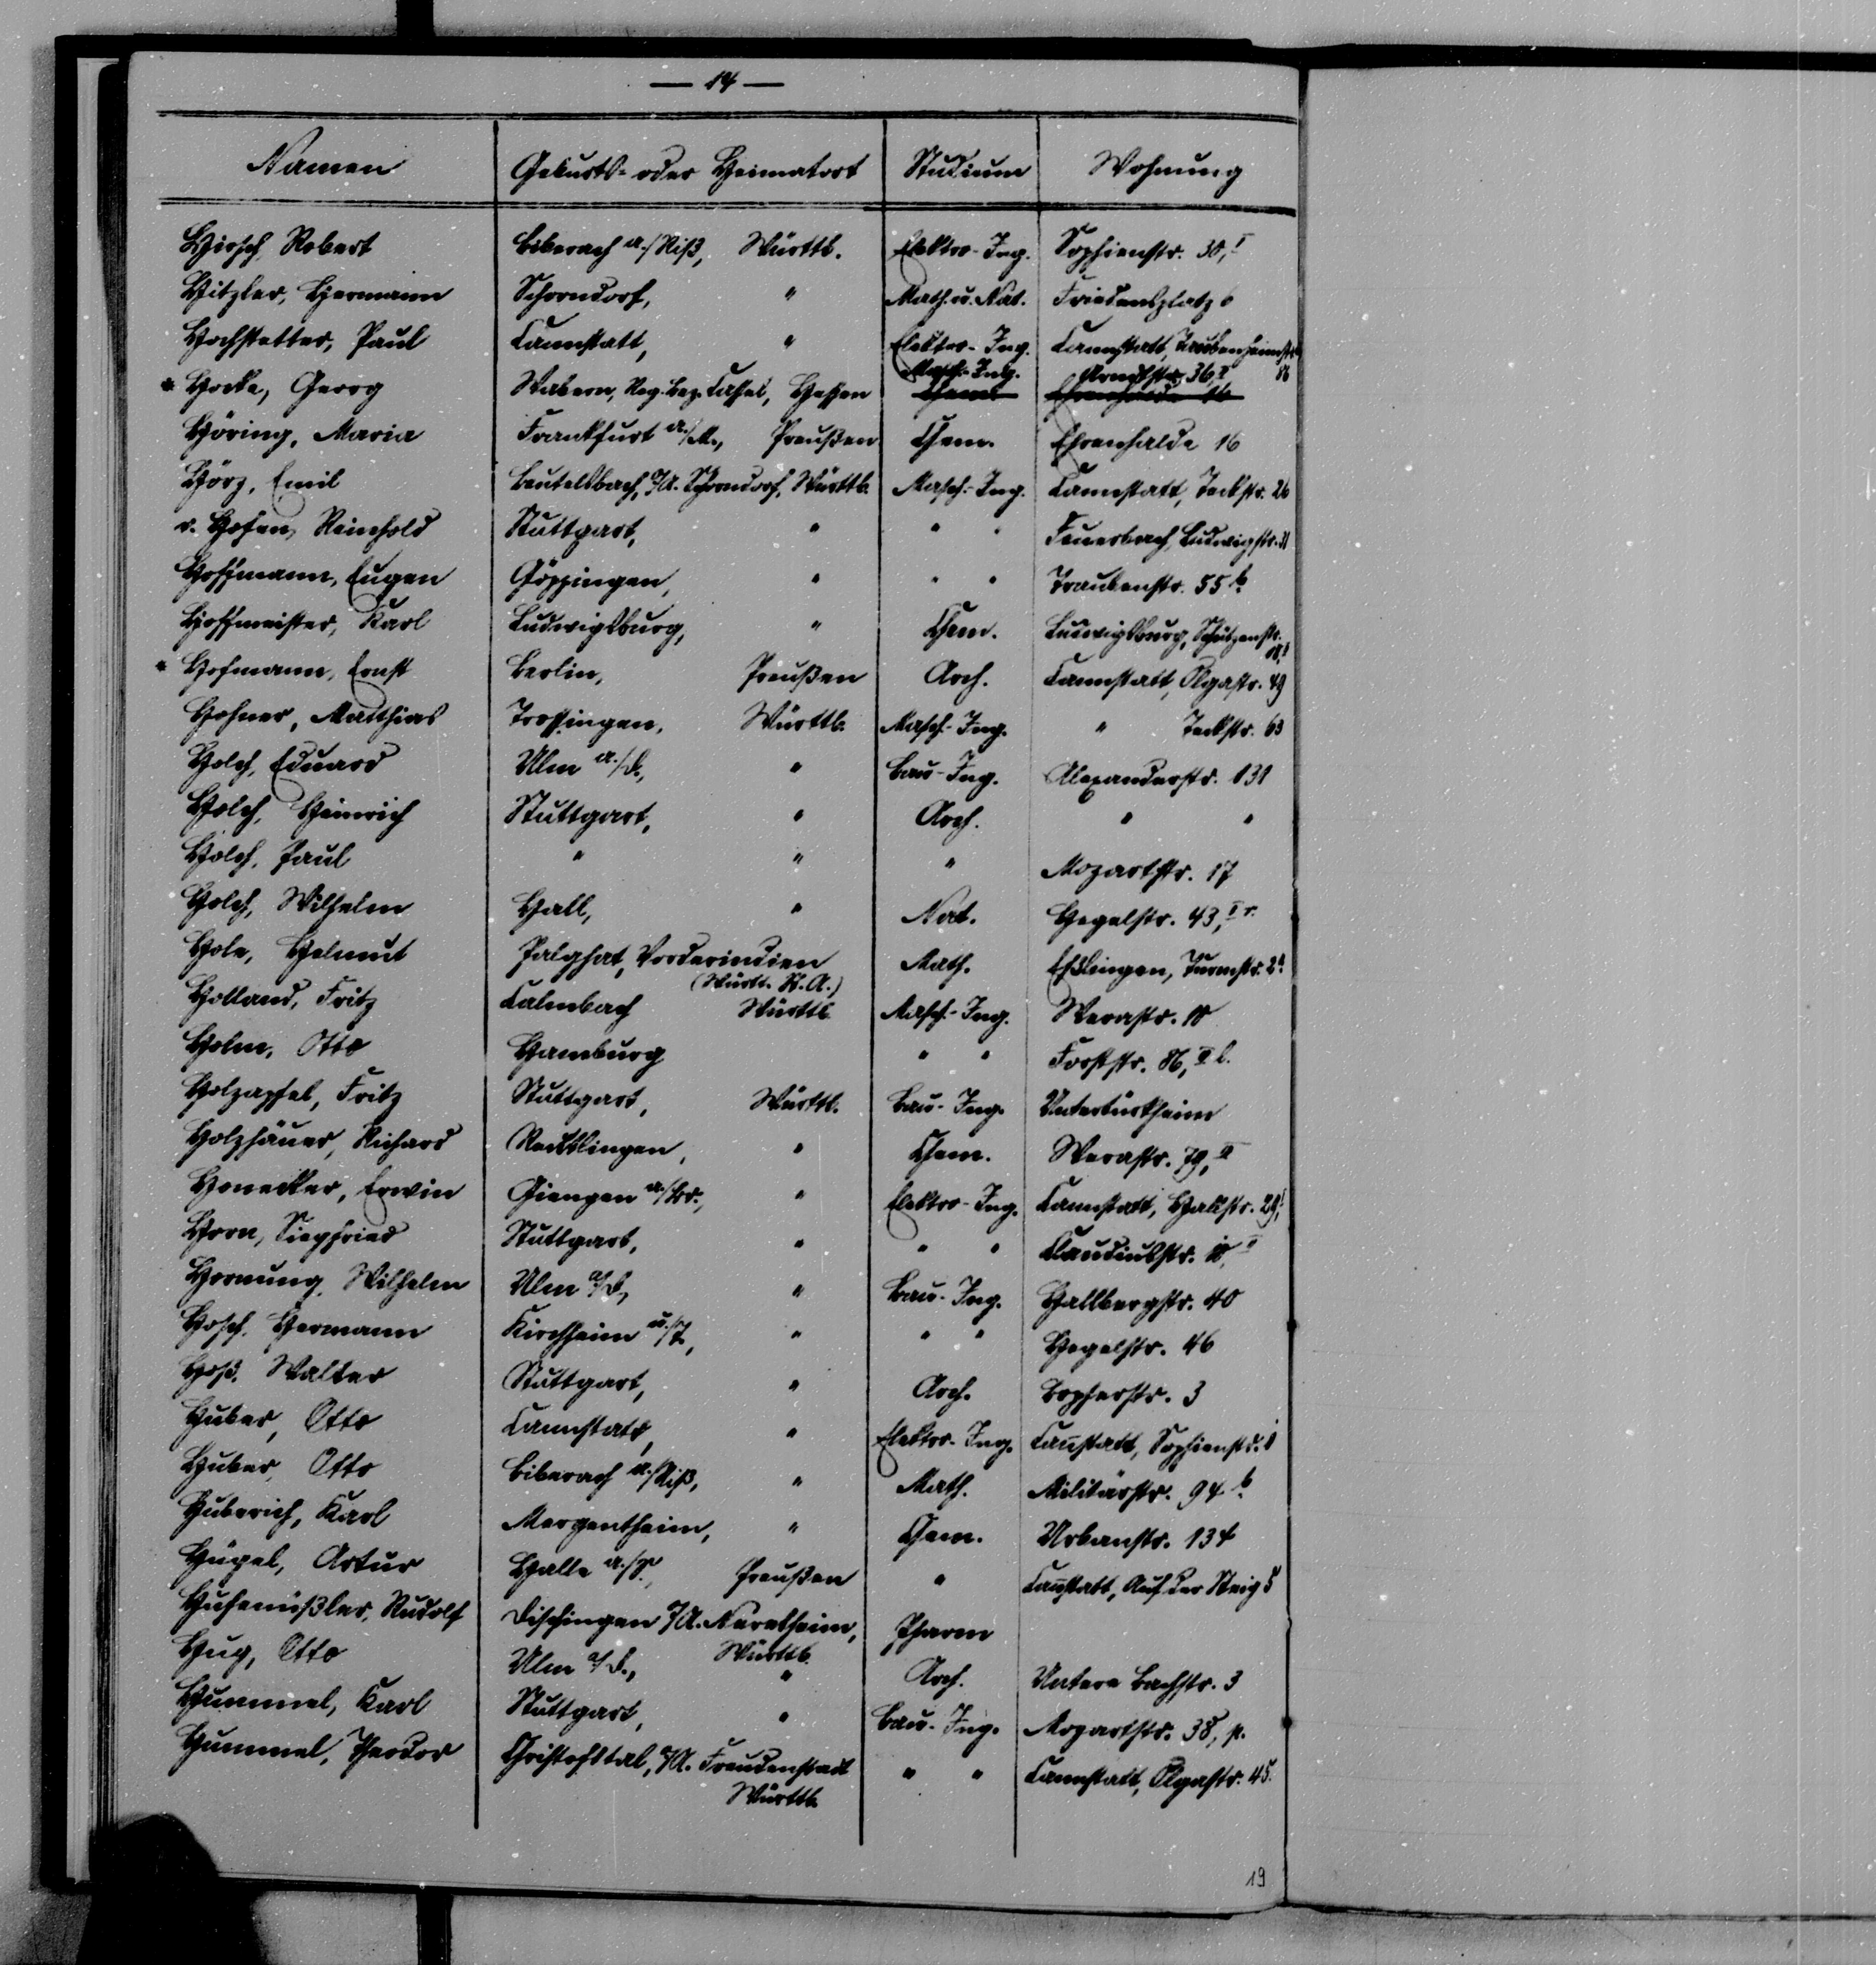 — 14 —
Namen Geburts- oder Heimatort Studium Wohnung
Hirsch, Robert Biberach a./Riß, Württb. Elektro-Ing. Sophienstr. 30, I
Hitzler, Hermann Schorndorf, " Math. u. Nat. Friedensplatz 6
Hochstetter, Paul Cannstatt, " Elektro-Ing. Cannstatt, Taubenheimstr. 86
* Hocke, Georg Wabern, Reg. Bez. Cassel, Hessen Masch.-Ing. Chem. Arndtstr. 36, I Ehrenhalde 16
Höring, Maria Frankfurt a./M., Preußen Chem. Ehrenhalde 16
Hörz, Emil Beutelsbach, O/A. Schorndorf, Württb. Masch.-Ing. Cannstatt, Teckstr. 26
v. Hofen, Reinhold Stuttgart, " " " Feuerbach, Ludwigstr. 21
Hoffmann, Eugen Göppingen, " " " Traubenstr. 55 b
Hoffmeister, Karl Ludwigsburg, " Chem. Ludwigsburg, Schützenstr.
* Hofmann, Ernst Berlin, Preußen Arch. Cannstatt, Olgastr. 49
Hohner, Matthias Trossingen, Württb. Masch.-Ing. " Teckstr. 63
Holch, Eduard Ulm a./D., " Bau-Ing. Alexanderstr. 131
Holch, Heinrich Stuttgart, " Arch. " "
Holch, Paul " " " Mozartstr. 17
Holch, Wilhelm Hall, " Nat. Hegelstr. 43, I r.
Hole, Helmut Palghat, Vorderindien Math. Eßlingen, Turmstr. 2
(Württ. St. A.)
Holland, Fritz Calmbach Württb. Masch.-Ing. Werastr. 10
Holm, Otto Hamburg " " Forststr. 86, II l.
Holzapfel, Fritz Stuttgart, Württb. Bau-Ing. Untertürkheim
Holzhäuer, Richard Reutlingen, " Chem. Werastr. 79, II
Honecker, Erwin Giengen a./Br., " Elektro-Ing. Cannstatt, Hallstr. 29, I
Horn, Siegfried Stuttgart, " " " Claudiusstr. 10, I
Hornung, Wilhelm Ulm a/D, " Bau-Ing. Hallbergstr. 40
Hosch, Hermann Kirchheim u./T., " " " Hegelstr. 46
Hoß, Walter Stuttgart, " Arch. Bopserstr. 3
Huber, Otto Cannstatt, " Elektro-Ing. Canstatt, Sophienstr. 1
Huber, Otto Biberach a./Riß, " Math. Militärstr. 94 b
Huberich, Karl Mergentheim, " Chem. Urbanstr. 134
Hügel, Artur Halle a./S., Preußen " Canstatt, Auf der Steig 5
Hufenüßler, Rudolf Dischingen O/A. Neresheim, Pharm
Württb.
Hug, Otto Ulm a/D., " Arch. Untere Bachstr. 3
Hummel, Karl Stuttgart, " Bau-Ing. Mozartstr. 38, p.
Hummel, Theodor Christofstal, O/A. Freudenstadt " " Cannstatt, Olgastr. 45.
Württb.
19